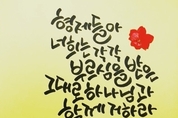 형제들아
너희는 각각
부르심을 받은
그대로 하나님과
함께 거하라